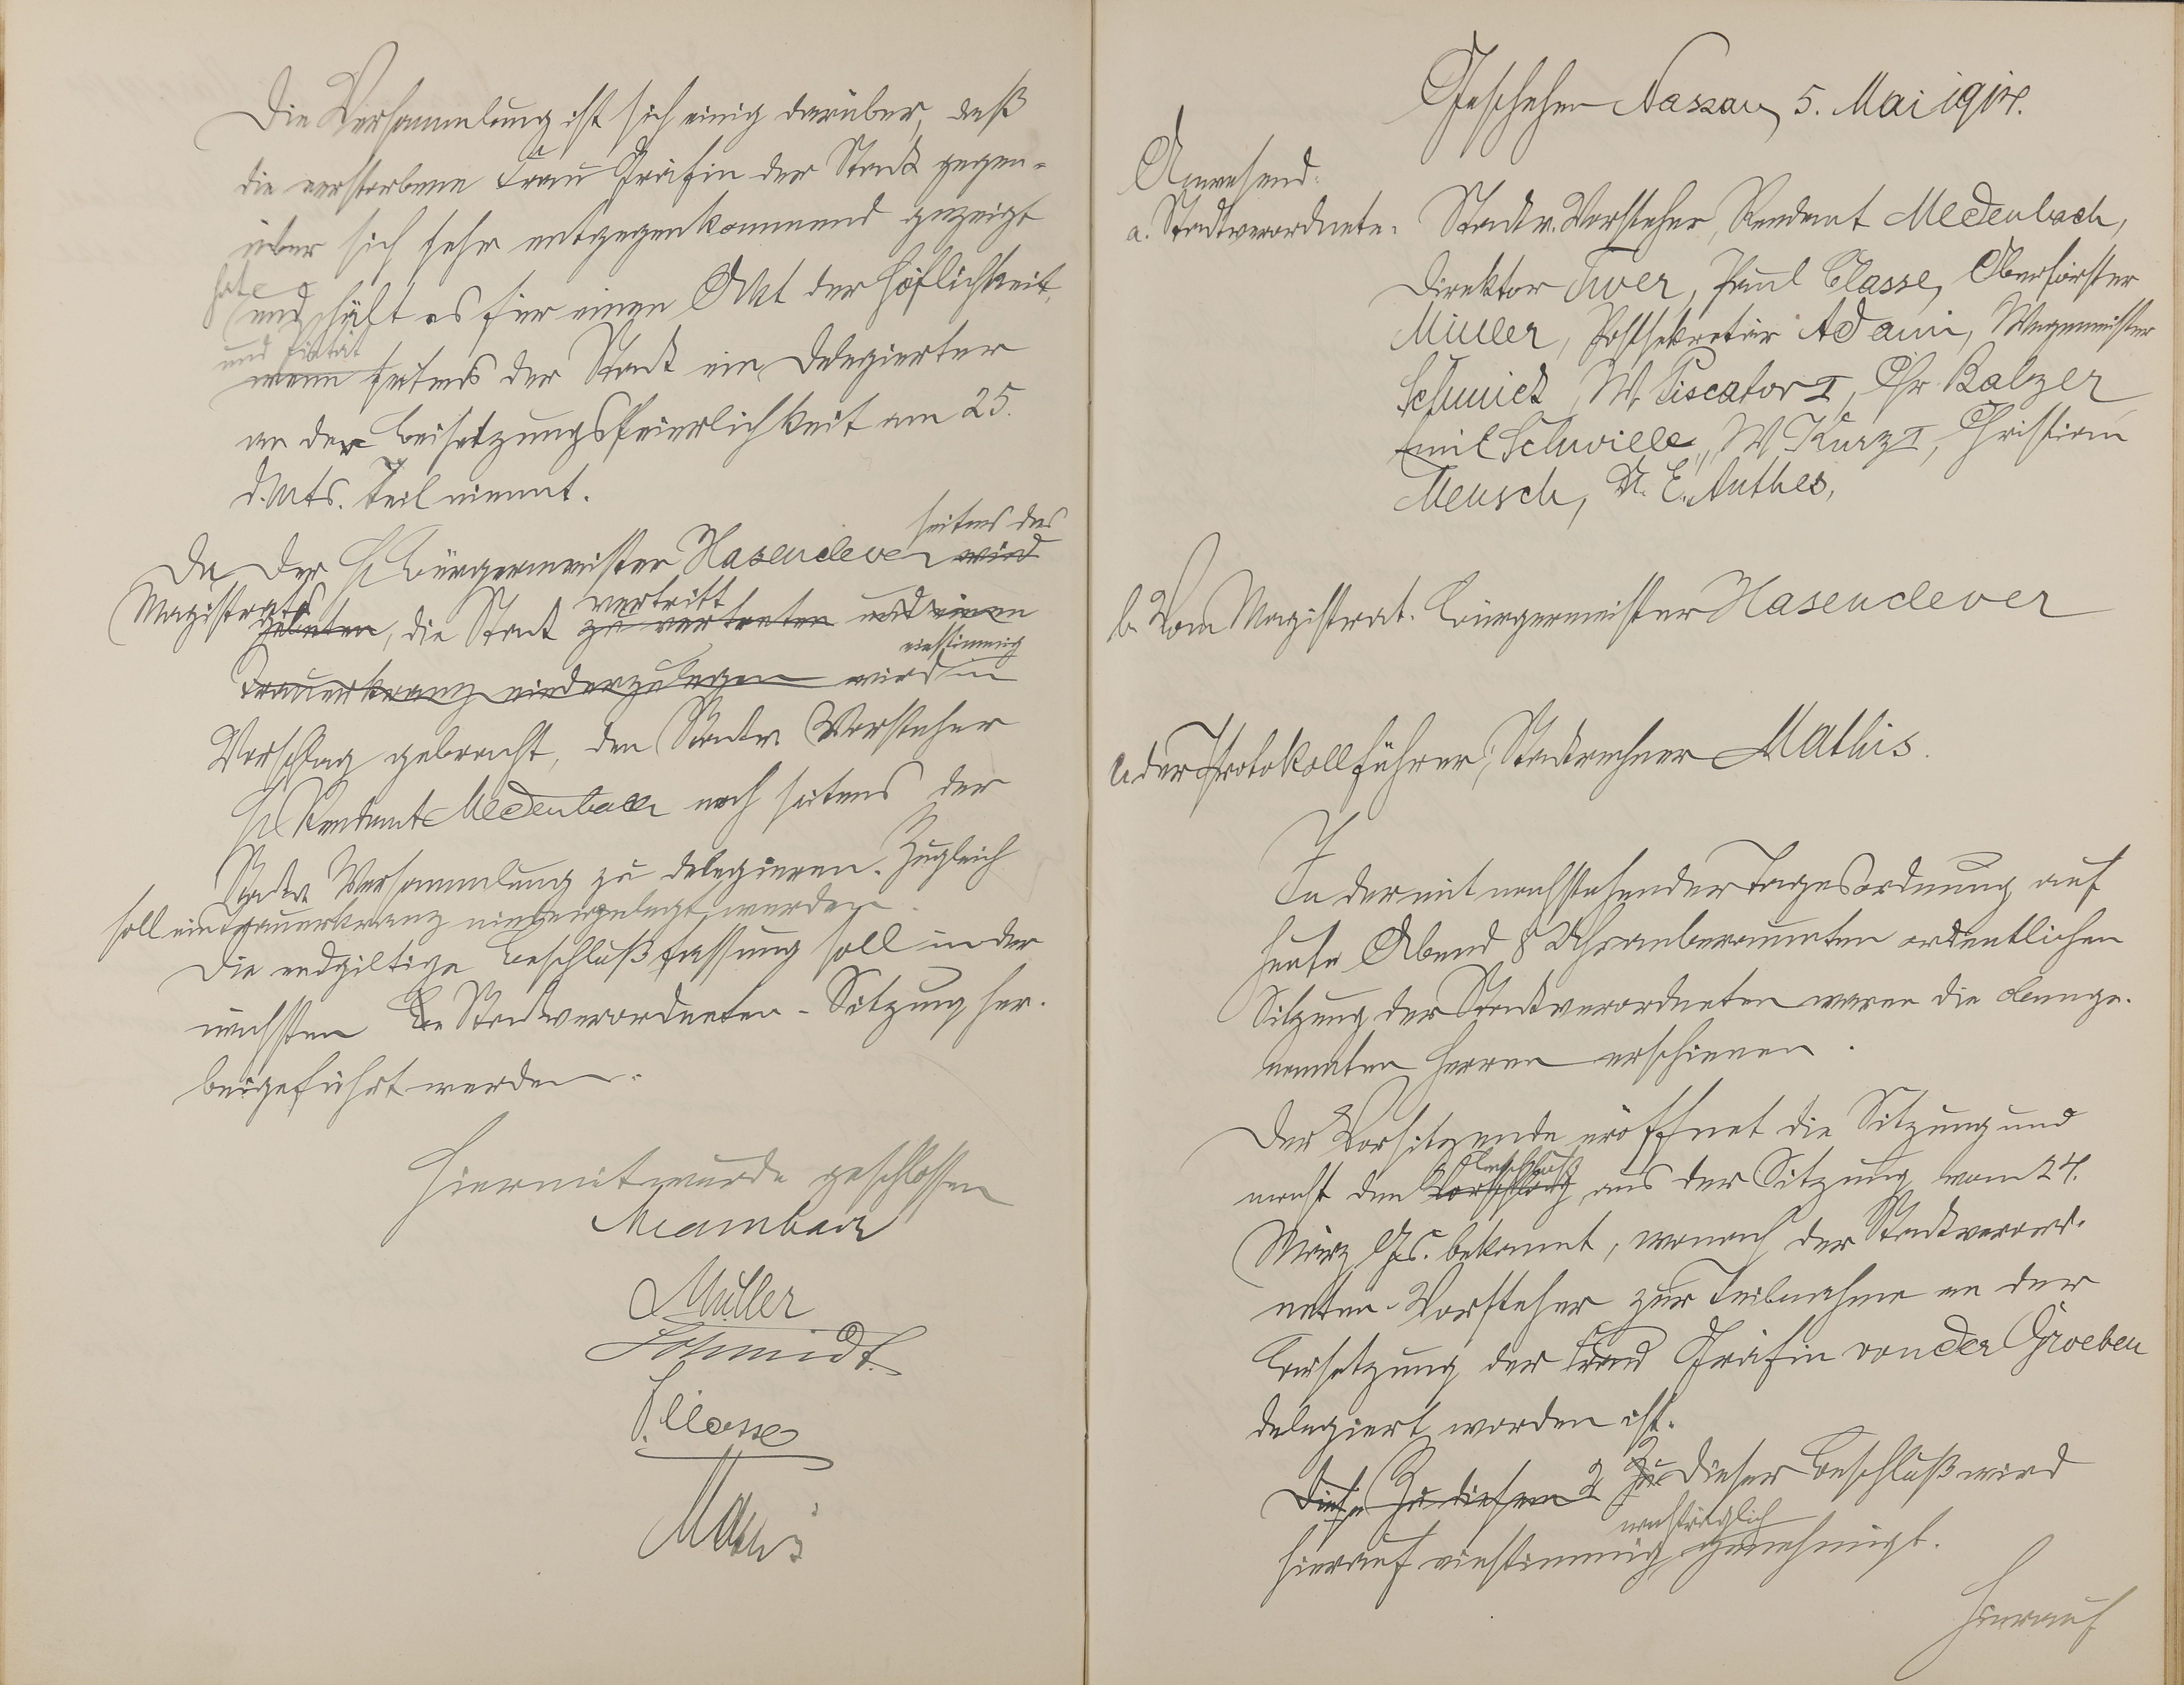 Die Versammlung ist sich einig darüber, daß
die verstorbene Frau Gräfin der Stadt gegen-
über sich sehr entgegenkommend gezeigt
hat
und hält es für einen Akt der Höflichkeit,
und Pietät
wenn seitens der Stadt ein Delegierter
an der Beisetzungsfeierlichkeit am 25.
d. Mts. teil nimmt.
seitens des
Da der H Bürgermeister Hasenclever wird
Magistrats vertritt
gebeten, die Stadt zu vertreten und einen
einstimmig
Trauerkranz niederzulegen wird in
Vorschlag gebracht, den Stadtv. Vorsteher
H Rendant Medenbach noch seitens der
Stadtv. Versammlung zu delegieren. Zugleich
soll ein Trauerkranz niedergelegt werden.
Die endgiltige Beschlußfassung soll in der
nächsten Stadtverordneten-Sitzung her-
beigeführt werden.
Hiermit wurde geschlossen
Medenbach
Müller
Schmidt.
P. Classe
Mathis
Geschehen Nassau, 5. Mai 1914.
Anwesend:
a. Stadtverordnete: Stadtv. Vorsteher, Rendant Medenbach,
Direktor Twer, Paul Classe, Oberförster
Müller, Postsekretär Adami, Wegemeister
Schmidt, W. Piscator I, Chr. Balzer,
Emil Schwille, W Kurz I, Christian
Meusch, Dr. E. Anthes,
b. Vom Magistrat: Bürgermeister Hasenclever
c. der Protokollführer, Stadtrechner Mathis.
In der mit nachstehender Tagesordnung auf
heute Abend 8 Uhr anberaumten ordentlichen
Sitzung der Stadtverordneten waren die obenge-
nannten Herren erschienen.
Der Vorsitzende eröffnet die Sitzung und
Beschluß
macht den Vorschlag aus der Sitzung vom 24.
März ds. Js. bekannt, wonach der Stadtverord-
neten-Vorsteher zur Teilnahme an der
Beisetzung der Frau Gräfin von der Groeben
delegiert worden ist.
Diese Zu diesem Zu Dieser Beschluß wird
nachträglich
hierauf einstimmig genehmigt.
Hierauf